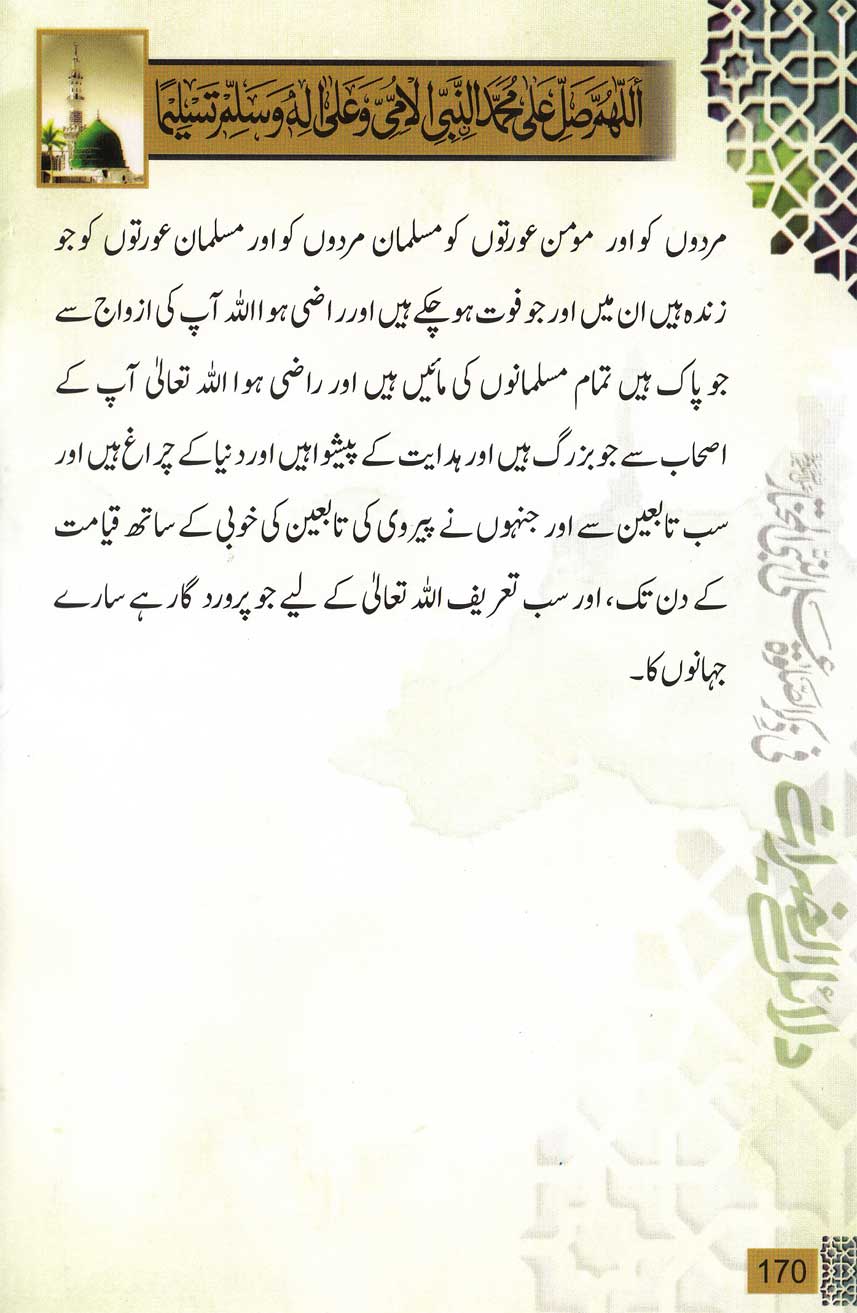 أَللّٰهُمَّ صَلِّ عَلٰی مُحَمَّدِ النَّبِیِّ الْاُمِّیِّ وَعَلٰی اٰلِهٖ وَسَلِّمْ تَسْلِیْمًا
مردوں کو اور مومن عورتوں کو مسلمان مردوں کو اور مسلمان عورتوں کو جو
زندہ ہیں ان میں اور جو فوت ہو چکے ہیں اور راضی ہوا اللہ آپ کی ازواج سے
جو پاک ہیں تمام مسلمانوں کی مائیں ہیں اور راضی ہوا اللہ تعالیٰ آپ کے
اصحاب سے جو بزرگ ہیں اور ہدایت کے پیشوا ہیں اور دنیا کے چراغ ہیں اور
سب تابعین سے اور جنہوں نے پیروی کی تابعین کی خوبی کے ساتھ قیامت
کے دن تک، اور سب تعریف اللہ تعالیٰ کے لیے جو پروردگار ہے سارے
جہانوں کا۔
دلائل الخیرات
170